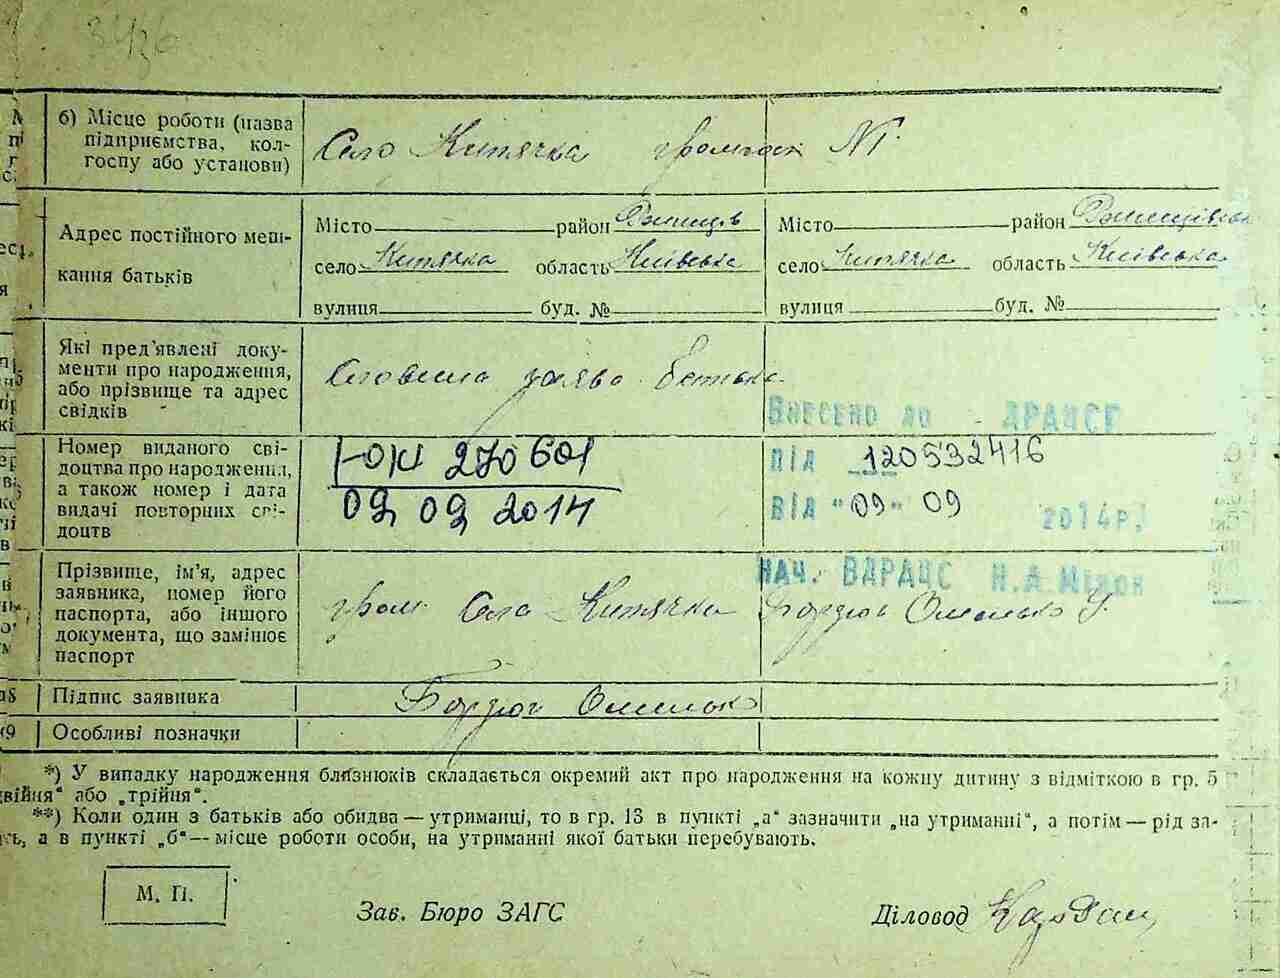 б) Місце роботи (назва
підприємства, кол-
госпу або установи)
Село Кипячка громгосп №1
Адрес постійного меш-
кання батьків
Місто район Ржищів
село Кипячка область Київська
вулиця буд. №
Місто район Ржищівськ
село Кипячка область Київська
вулиця буд. №
Які пред'явлені доку-
менти про народження,
або прізвище та адрес
свідків
Словесна заява батька
Номер виданого сві-
доцтва про народження,
а також номер і дата
видачі повторних сві-
доцтв
І-ОК 270601
09 09 2014
Внесено до ДРАЦСГ
під 120532416
від "09" 09 2014р.
Нач. ВДРАЦС
Прізвище, ім'я, адрес
заявника, номер його
паспорта, або іншого
документа, що замінює
паспорт
гром. Села Кипячка Омелько
Підпис заявника
Омелько
Особливі позначки
*) У випадку народження близнюків складається окремий акт про народження на кожну дитину з відміткою в гр. 5
двійня" або „трійня".
**) Коли один з батьків або обидва — утриманці, то в гр. 13 в пункті „а" зазначити „на утриманні", а потім — рід за-
ть, а в пункті „б" — місце роботи особи, на утриманні якої батьки перебувають.
М. П.
Зав. Бюро ЗАГС
Діловод